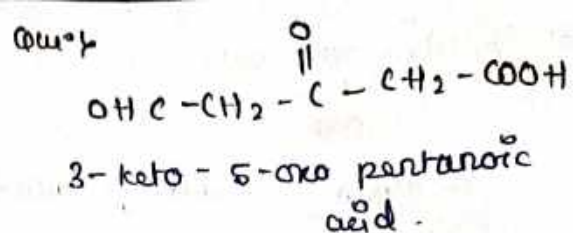 O
||
OHC-CH2-C-CH2-COOH
3-keto-5-oxo pentanoic
acid.